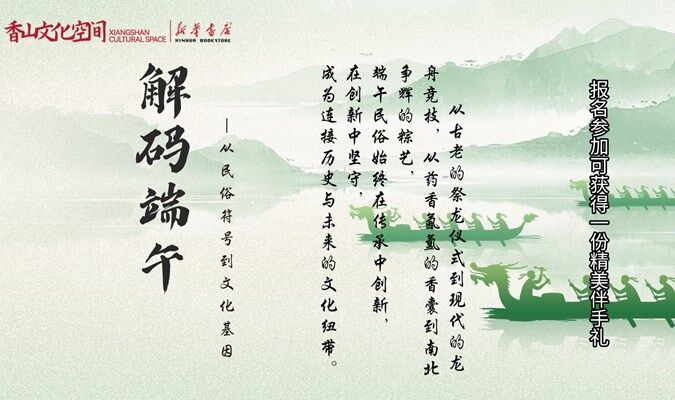 香山文化空间
XIANGSHAN
CULTURAL SPACE
新华书店
XINHUA BOOKSTORE
解码端午
——从民俗符号到文化基因
从古老的祭龙仪式到现代的龙
舟竞技，从药香氤氲的香囊到南北
争辉的粽艺，
端午民俗始终在传承中创新，
在创新中坚守，
成为连接历史与未来的文化纽带。
报名参加可获得一份精美伴手礼